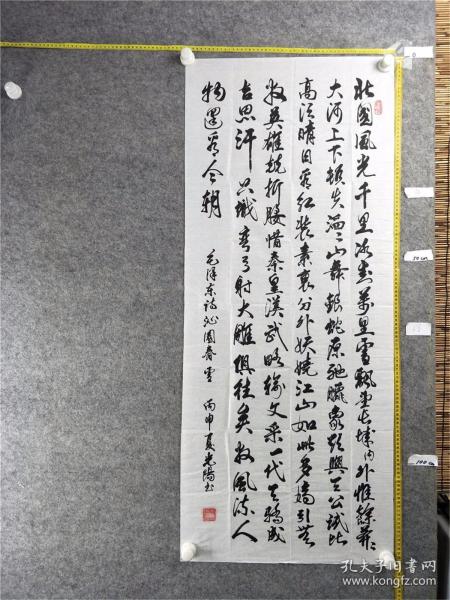 北国风光千里冰封万里雪飘望长城内外惟馀莽々
大河上下顿失滔々山舞银蛇原驰腊象欲与天公试比
高须晴日看红装素裹分外妖娆江山如此多娇引无
数英雄竞折腰惜秦皇汉武略输文采一代天骄成
吉思汗只识弯弓射大雕俱往矣数风流人
物还看今朝
毛泽东诗沁园春雪 丙申夏
50cm
100cm
孔夫子旧书网
www.kongfz.com